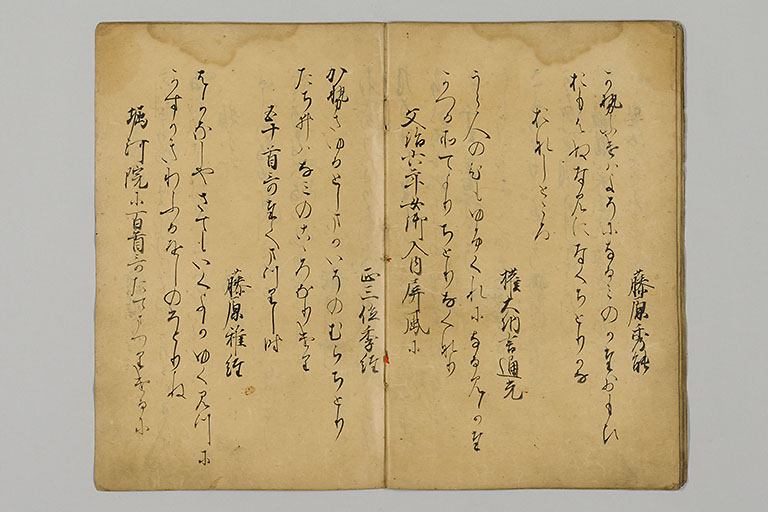 藤原秀能
かせふけはよそになるみのかたおもひ
おもはぬなみになくちとりかな
おなしところ
権大納言通光
うら人のひもゆふくれになるみかた
かへるそてよりちとりなくなり
文治六年女御入内屏風に
正三位季経
かせさゆるとしまかいそのむらちとり
たちゐはなみのこゝろなりけり
五十首哥奉りし時
藤原雅経
はかなしやさてもいくよかゆくみつに
かすかきわふるをしのひとりね
堀河院に百首哥たてまつりけるに